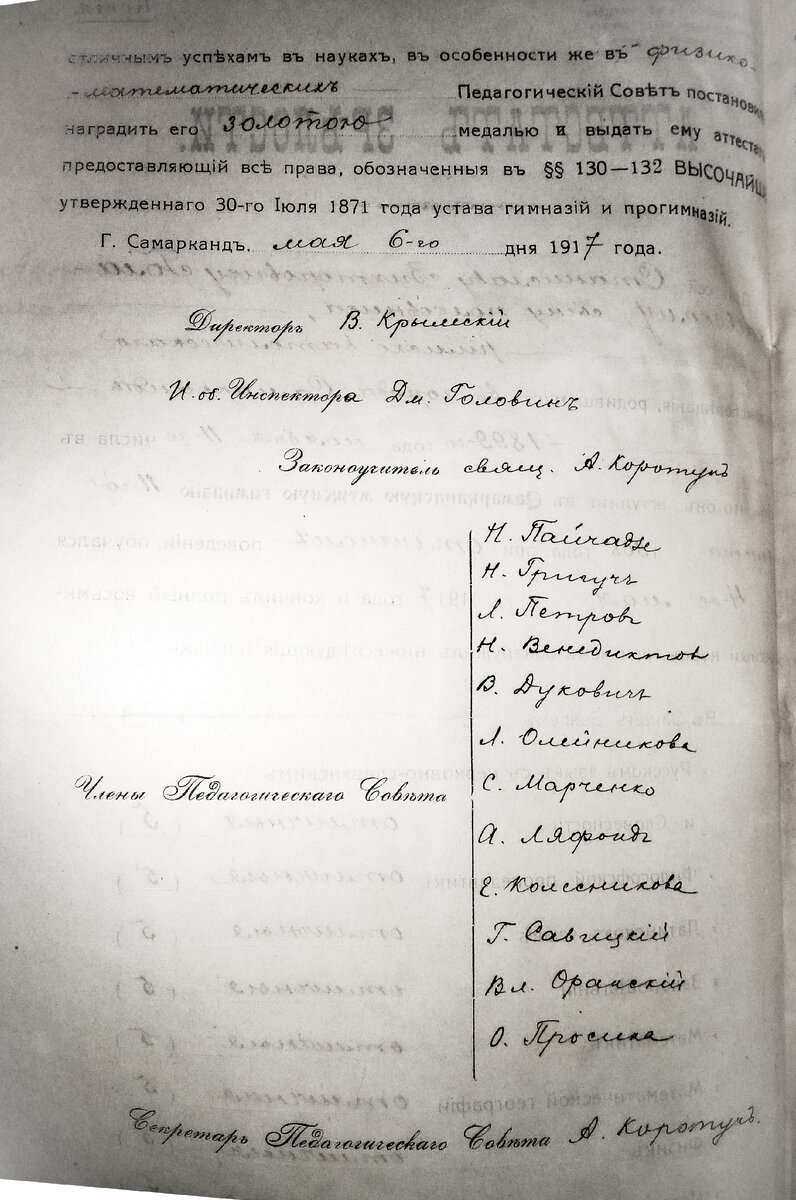 отличнымъ успѣхамъ въ наукахъ, въ особенности же въ физико-
-математическихъ Педагогическій Совѣтъ постановилъ
наградить его золотою медалью и выдать ему аттестатъ
предоставляющій всѣ права, обозначенныя въ §§ 130—132 ВЫСОЧАЙШЕ
утвержденнаго 30-го Іюля 1871 года устава гимназій и прогимназій.
Г. Самаркандъ. мая 6-го дня 1917 года.
Директоръ В. Крымскій
И. об. Инспектора Дм. Головинъ
Законоучитель свящ. А. Коротунъ
Н. Пайчадзе
Н. Григучъ
Л. Петровъ
Н. Венедиктовъ
В. Дуковичъ
Л. Олейникова
Члены Педагогическаго Совѣта
С. Марченко
А. Ляфондъ
Е. Колесникова
Г. Савицкій
Вл. Оранскій
О. Просина
Секретарь Педагогическаго Совѣта А. Коротунъ.